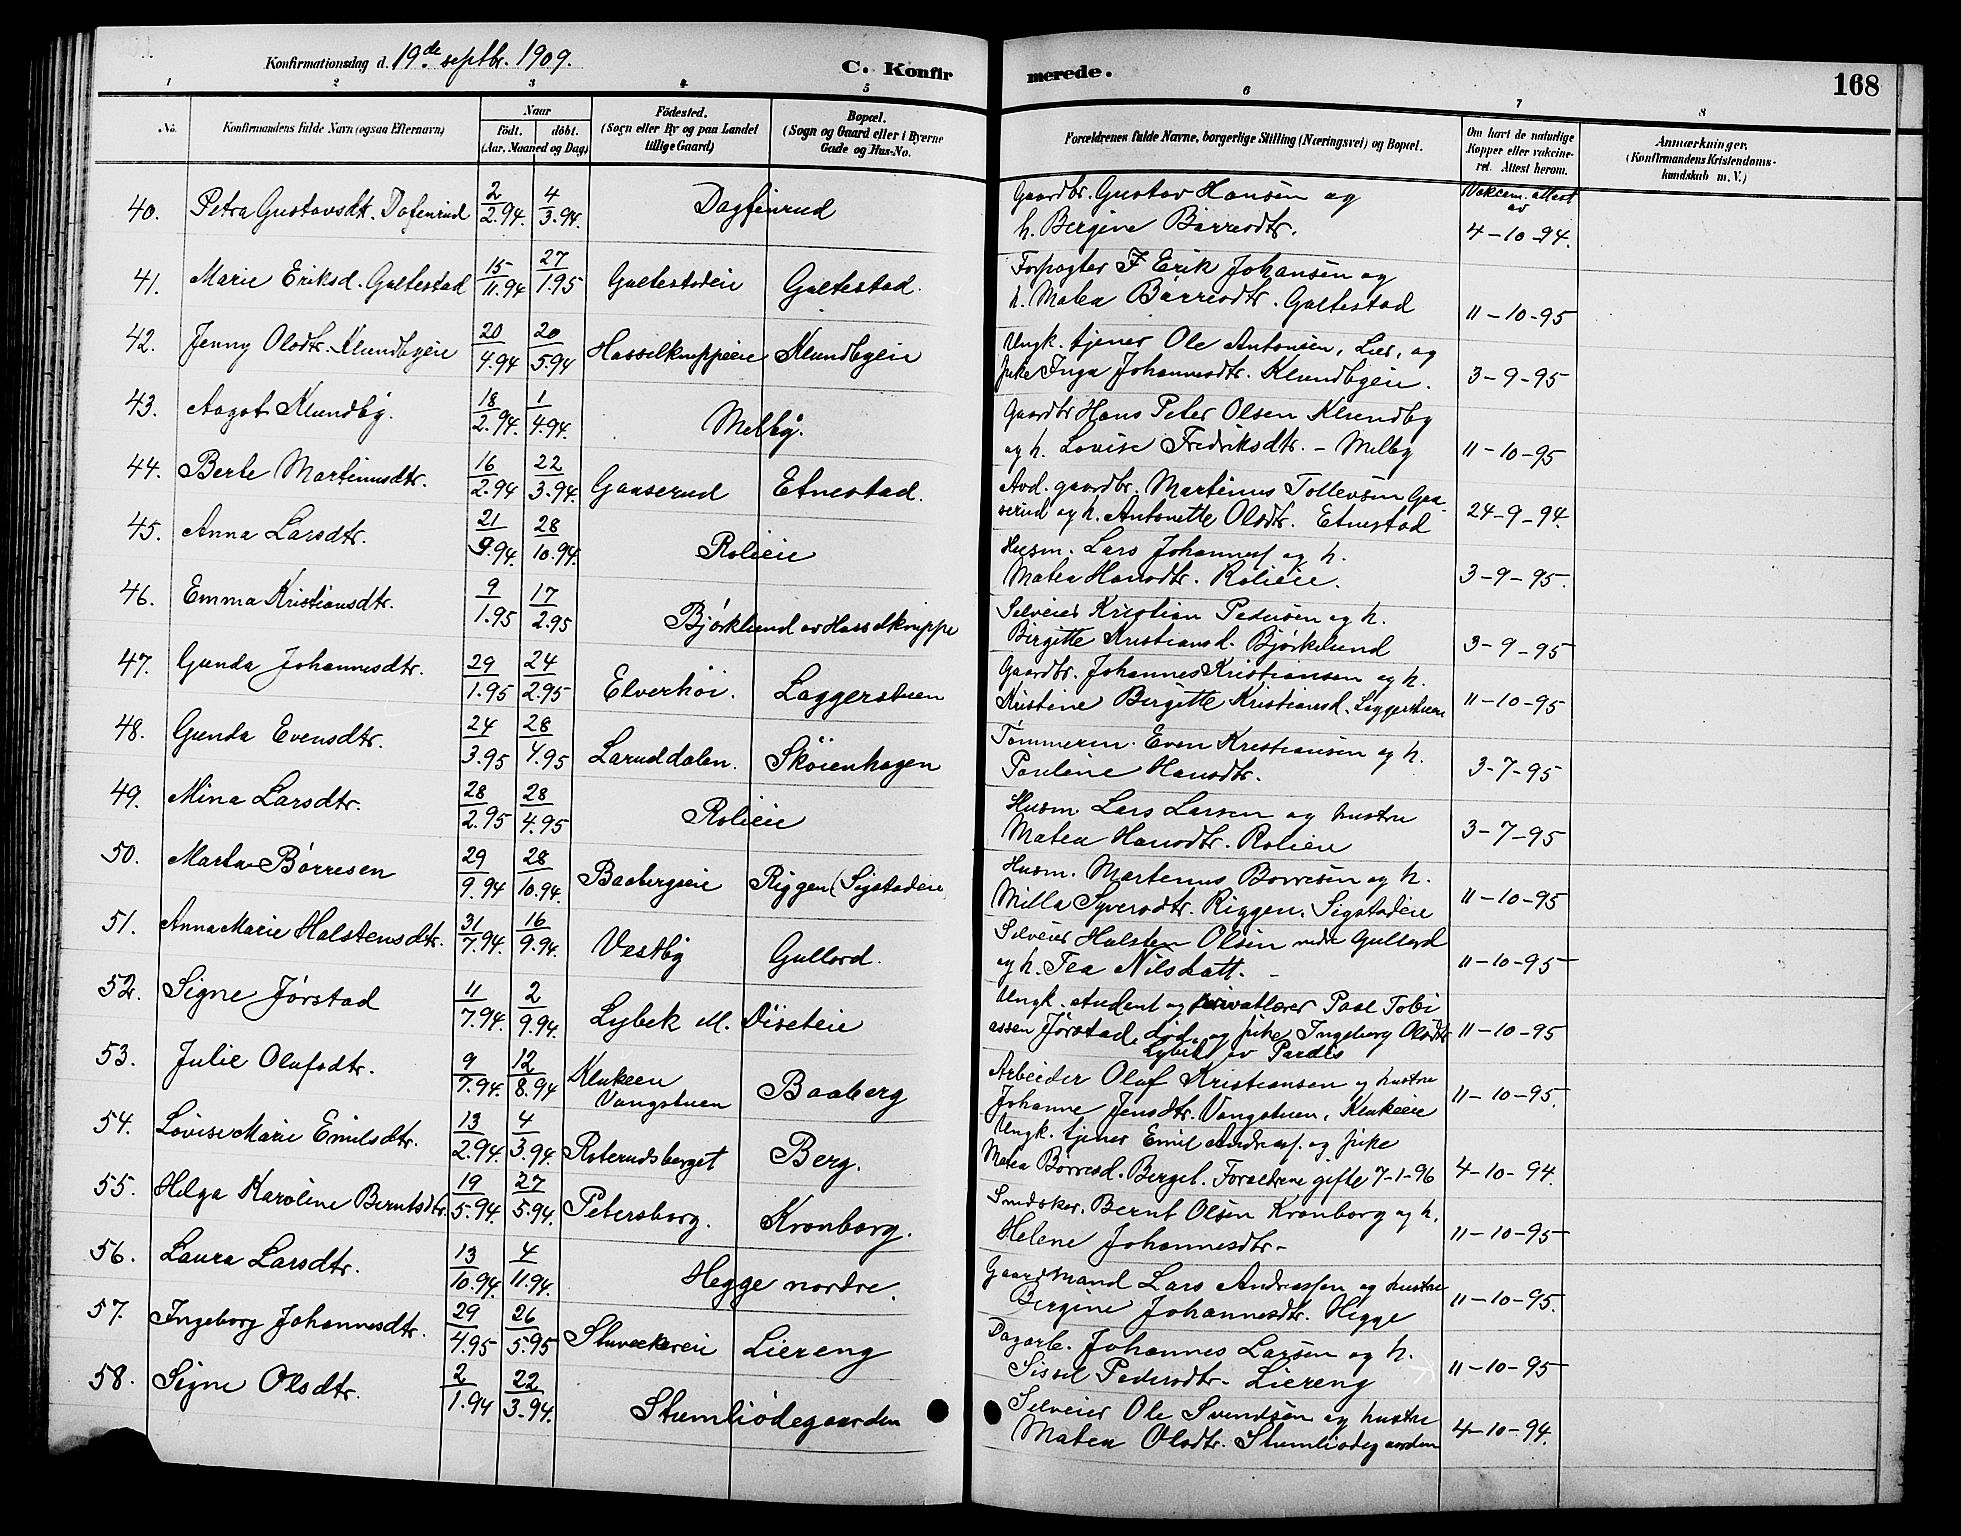 Konfirmationsdag d. 19de septbr. 1909.
C. Konfirmerede.
168
1 2 3 4 5 6 7 8
No.
Konfirmandens fulde Navn (ogsaa Efternavn)
Naar
födt. döbt.
(Aar, Maaned og Dag)
Födested.
(Sogn eller By og paa Landet
tillige Gaard)
Bopæl.
(Sogn og Gaard eller i Byerne
Gade og Hus-No.
Forældrenes fulde Navne, borgerlige Stilling (Næringsvei) og Bopæl.
Om havt de naturlige
Kopper eller vakcine-
ret. Attest herom.
Anmærkninger.
(Konfirmandens Kristendoms-
kundskab m. V.)
40. Petra Gustavsdt. Dafenrud 2/2.94. 4/3.94. Dagfinrud Gaardbr. Gustav Hansen og
h. Bergine Børresdtr. Vakcin. attest av 4-10-94.
41. Marie Eriksd. Galtestad 15/11.94 27/1.95 Galtestadeie Galtestad. Forpagter Erik Johansen og
h. Matea Børresdtr. Galtestad 11-10-95
42. Jenny Olsdtr. Klundbyeie 20/4.94 20/5.94 Hasselknippeeie Klundbyeie Ungk. tjener Ole Antonsen, Lier, og
pike Inga Johannesdtr. Klundbyeie. 3-9-95
43. Aagot Klundby. 18/2.94. 1/4.94. Melby. Gaardbr Hans Peter Olsen Klundby
og h. Lovise Fredriksdtr. - Melby 11-10-95
44. Berte Martinusdtr. 16/2.94 22/3.94. Gaaserud Etnestad. Avd. gaardbr. Martinus Tollevsen Gaa-
serud og h. Antonette Olsdtr. Etnestad 24-9-94.
45. Anna Larsdtr. 21/9.94 28/10.94. Rolieie Husm. Lars Johannesf og h.
Matea Hansdtr. Rolieie. 3-9-95.
46. Emma Kristiansdtr. 9/1.95 17/2.95 Bjørklund av Hasselknippe Selveier Kristian Pedersen og h.
Birgitte Kristiansd. Bjørkelund 3-9-95
47. Gunda Johannesdtr. 29/1.95 24/2.95 Elverhøi. Laggerstuen Gaardbr. Johannes Kristiansen og h.
Kristine Birgitte Kristiansd. Laggerstuen 11-10-95
48. Gunda Evensdtr. 24/3.95 28/4.95 Laruddalen. Skøienhagen Tømmerm. Even Kristiansen og h.
Pauline Hansdtr. 3-7-95
49. Mina Larsdtr. 28/2.95 28/4.95 Rolieie Husm. Lars Larsen og hustru
Matea Hansdtr. Rolieie 3-7-95
50. Marta Børresen 29/9.94 28/10.94. Baabergseie Riggen (Sigstadeie Husm. Martinus Børresen og h.
Milla Syversdtr. Riggen, Sigstadeie 11-10-95
51. Anna Marie Halstensdtr. 31/7.94. 16/9.94. Vestby Gullord. Selveier Halsten Olsen nedr Gullord
og h. Tea Nilsdatt. - 11-10-95
52. Signe Jørstad 11/7.94. 2/9.94. Lybek M. Diseteie Ungk. student og privatlærer Paal Tobi
assen Jørstad, død, og pike Ingeborg Olsdtr
Lybek av Pardis 11-10-95
53. Julie Olafsdtr. 9/7.94. 12/8.94 Klukeen Vangstuen Baaberg Arbeider Olaf Kristiansen og hustru
Johanne Jensdtr. Vangstuen, Klukeeie 11-10-95.
54. Lovise Marie Emilsdtr. 13/2.94. 4/3.94. Roterudsberget Berg. Ungk. tjener Emil Andreasf. og pike
Matea Børresd. Berget. Forældrene gifte 7-1-96 4-10-94.
55. Helga Karoline Berntsdtr. 19/5.94. 27/5.94. Petersborg. Kronborg. Bernt Olsen Kronborg og h.
Helene Johannesdtr- 11-10-95
56. Laura Larsdtr. 13/10.94. 4/11.94. Hegge nordre. Gaardmand Lars Andreassen og hustru
Bergine Johannesdtr. Hegge 11-10-95.
57. Ingeborg Johannesdtr. 29/4.95 26/5.95 Stuveekereie Liereng Dagarb. Johannes Larsen og h.
Sissel Pedersdtr- Liereng 11-10-95
58. Signe Olsdtr. 2/1.94 22/3.94. Stumliødegaarden Selveier Ole Svendsen og hustru
Matea Olsdtr. Stumliødegaarden 4-10-94.